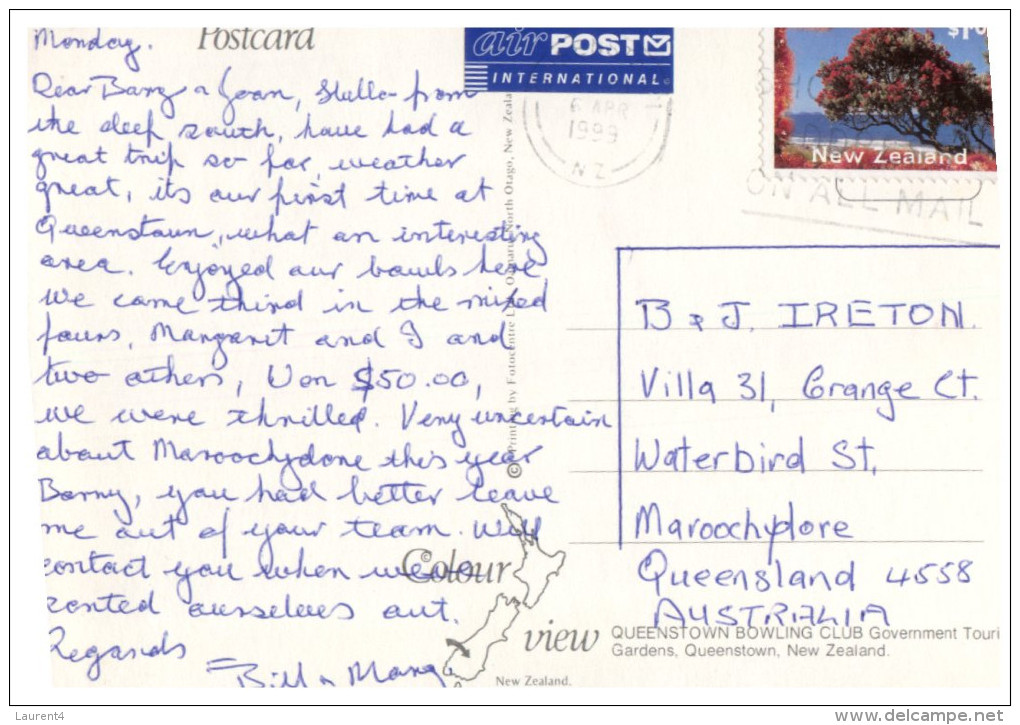 Monday. Postcard
air POST
INTERNATIONAL
6 APR
1999
NZ
$1
New Zealand
ON ALL MAIL
Dear Barry & Joan, Hello from
the deep south, have had a
great trip so far, weather
great, its our first time at
Queenstown, what an interesting
area. Enjoyed our bowls here
We came third in the mixed
fours, Margaret and I and
two others, Won $50.00,
we were thrilled. Very uncertain
about Maroochydore this year
Barry, you had better leave
me out of your team. Will
contact you when we've
sorted ourselves out.
Regards
Bill & Marg
© Printing by Fotocentre Ltd, Oamaru, North Otago, New Zeala
B & J. IRETON.
Villa 31, Grange Ct.
Waterbird St,
Maroochydore
Queensland 4558
AUSTRALIA
Colour
view
New Zealand.
QUEENSTOWN BOWLING CLUB Government Touri
Gardens, Queenstown, New Zealand.
Laurent4
www.delcampe.net